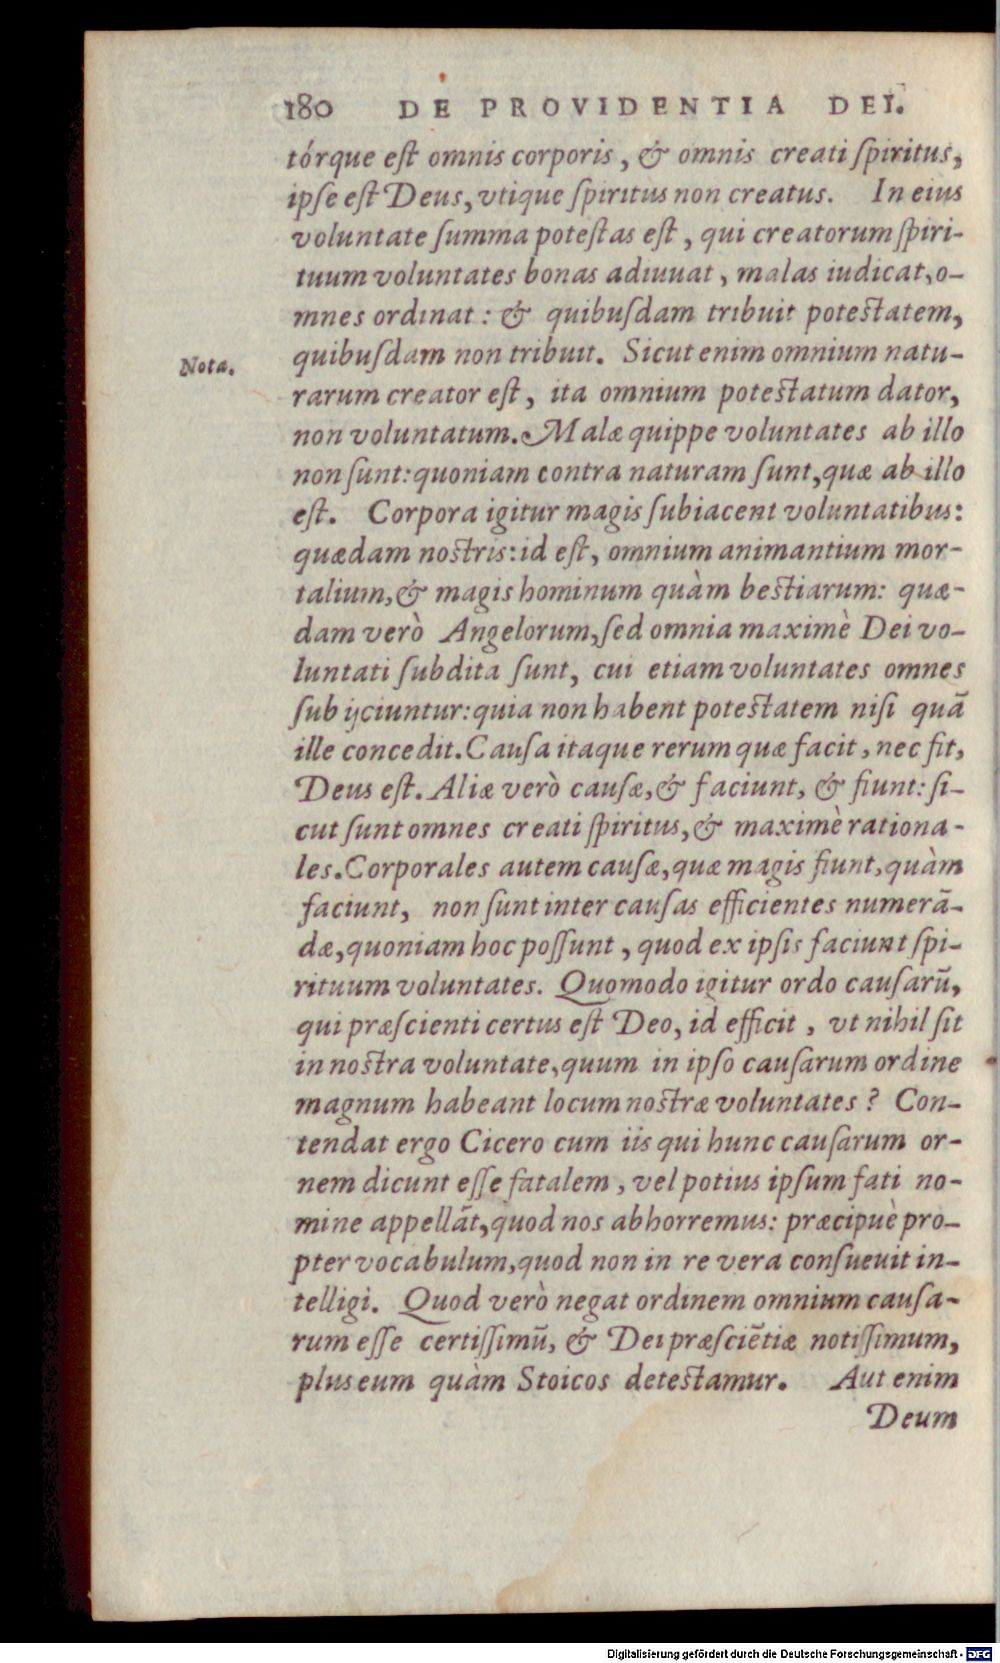 180 DE PROVIDENTIA DEI.
tórque eſt omnis corporis, & omnis creati ſpiritus,
ipſe eſt Deus, vtique ſpiritus non creatus. In eius
voluntate ſumma poteſtas eſt, qui creatorum ſpiri-
tuum voluntates bonas adiuuat, malas iudicat, o-
mnes ordinat: & quibuſdam tribuit poteſtatem,
quibuſdam non tribuit. Sicut enim omnium natu-
Nota.
rarum creator eſt, ita omnium poteſtatum dator,
non voluntatum. Malæ quippe voluntates ab illo
non ſunt: quoniam contra naturam ſunt, quæ ab illo
eſt. Corpora igitur magis ſubiacent voluntatibus:
quædam noſtris: id eſt, omnium animantium mor-
talium, & magis hominum quàm beſtiarum: quæ-
dam verò Angelorum, ſed omnia maximè Dei vo-
luntati ſubdita ſunt, cui etiam voluntates omnes
ſubijciuntur: quia non habent poteſtatem niſi quā
ille concedit. Cauſa itaque rerum quæ facit, nec fit,
Deus eſt. Aliæ verò cauſæ, & faciunt, & fiunt: ſi-
cut ſunt omnes creati ſpiritus, & maximè rationa-
les. Corporales autem cauſæ, quæ magis fiunt, quàm
faciunt, non ſunt inter cauſas efficientes numerā-
dæ, quoniam hoc poſſunt, quod ex ipſis faciunt ſpi-
rituum voluntates. Quomodo igitur ordo cauſarū,
qui præſcienti certus eſt Deo, id efficit, vt nihil ſit
in noſtra voluntate, quum in ipſo cauſarum ordine
magnum habeant locum noſtræ voluntates? Con-
tendat ergo Cicero cum iis qui hunc cauſarum or-
nem dicunt eſſe fatalem, vel potius ipſum fati no-
mine appellāt, quod nos abhorremus: præcipuè pro-
pter vocabulum, quod non in re vera conſueuit in-
telligi. Quod verò negat ordinem omnium cauſa-
rum eſſe certiſſimū, & Dei præſciētiæ notiſſimum,
plus eum quàm Stoicos deteſtamur. Aut enim
Deum
Digitalisierung gefördert durch die Deutsche Forschungsgemeinschaft - DFG